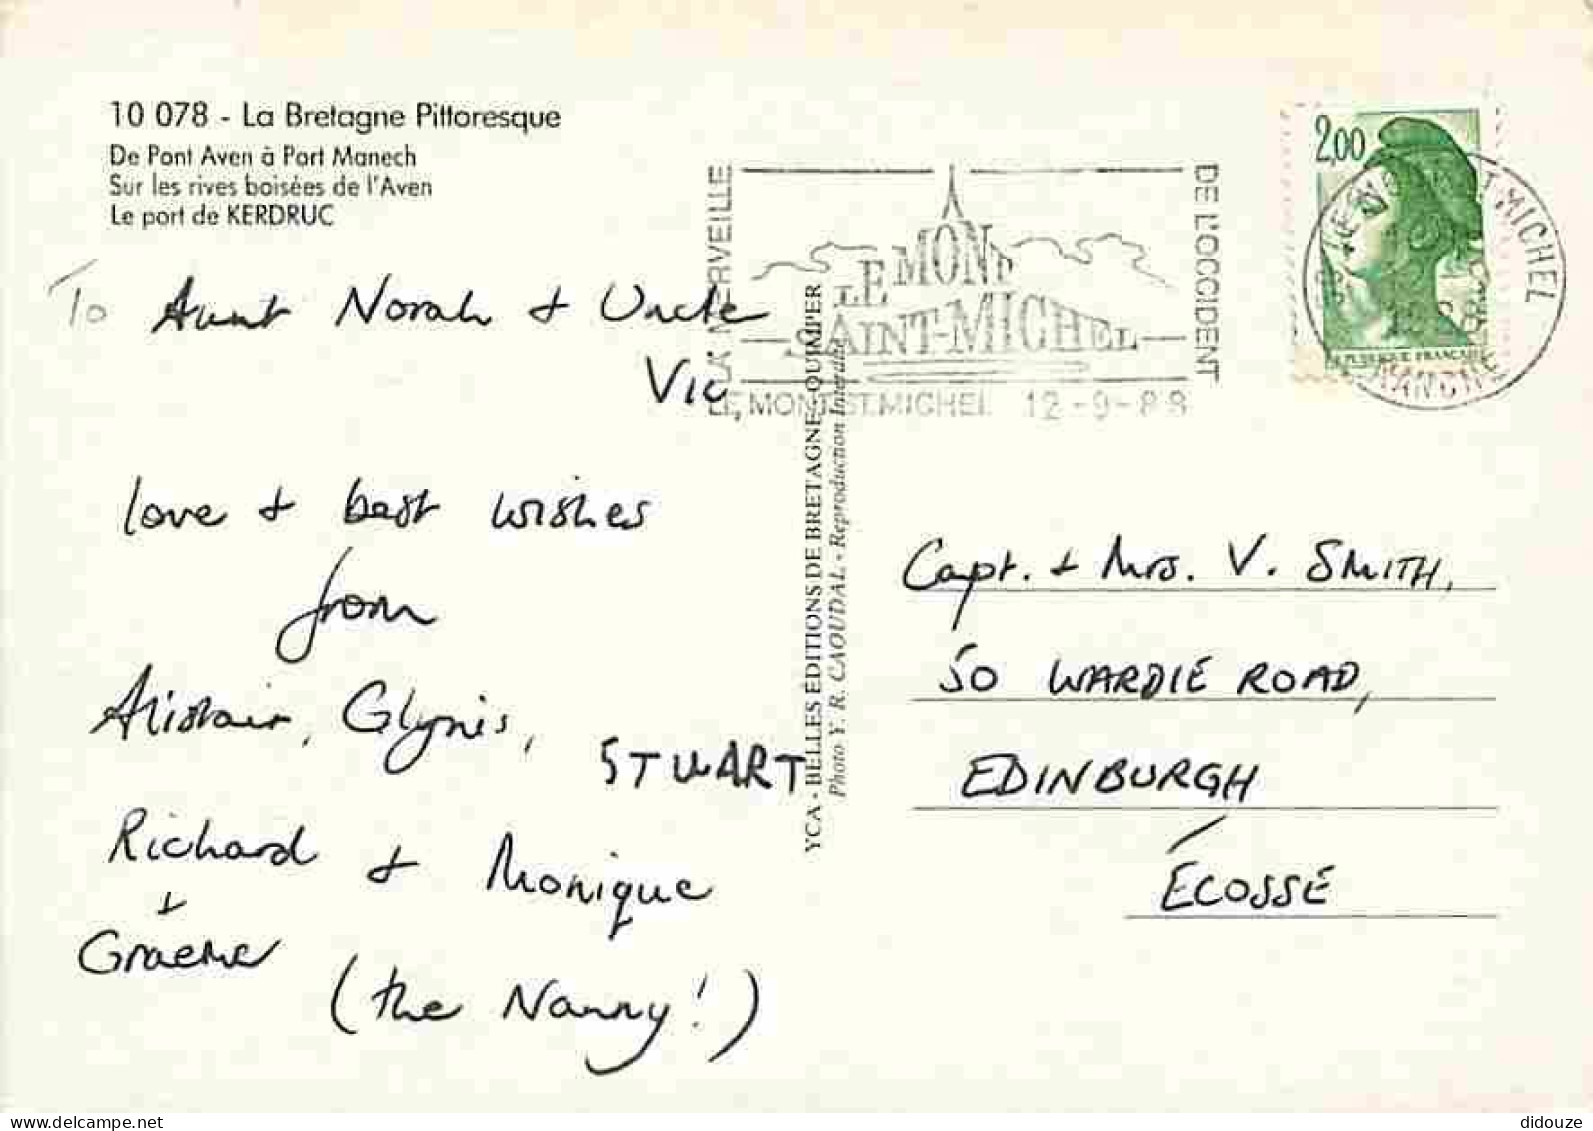 10 078 - La Bretagne Pittoresque
De Pont Aven à Port Manech
Sur les rives boisées de l'Aven
Le port de KERDRUC
To Aunt Norah + Uncle
Vic
love + best wishes
from
Alistair, Glynis,
STUART
Richard + Monique
+
Graeme
(the Nanny!)
YCA - BELLES EDITIONS DE BRETAGNE - QUIMPER
Photo Y. R. CAOUDAL - Reproduction Interdite
LA MERVEILLE
LE MONT
SAINT-MICHEL
DE L'OCCIDENT
LE MONT ST MICHEL 12-9-88
2,00
REPUBLIQUE FRANCAISE
MICHEL
MANCHE
Capt. + Mrs. V. SMITH,
50 WARDIE ROAD,
EDINBURGH
ÉCOSSE
delcampe.net
didouze